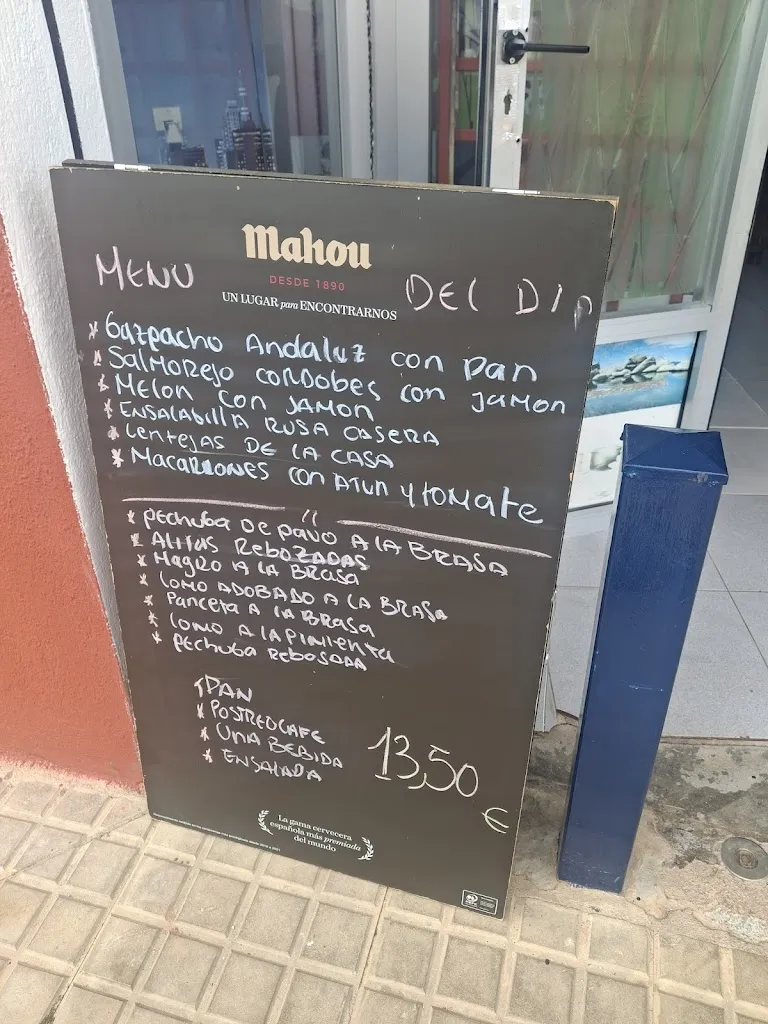 Mahou
DESDE 1890
UN LUGAR para ENCONTRARNOS
MENU DEL DIA
* Gazpacho Andaluz con pan
* Salmorejo cordobes con jamon
* Melon con Jamon
* Ensaladilla Rusa Casera
* Lentejas de la casa
* Macarrones con Atun y tomate
* Pechuba de pavo a la brasa
* Alitas Rebozadas
* Magro a la Brasa
* Lomo adobado a la brasa
* Panceta a la brasa
* Lomo a la pimienta
* Pechuba rebosada
* PAN
* POSTRE O CAFE
* UNA BEBIDA
* ENSALADA
13,50 €
La gama cervecera
española más premiada
del mundo